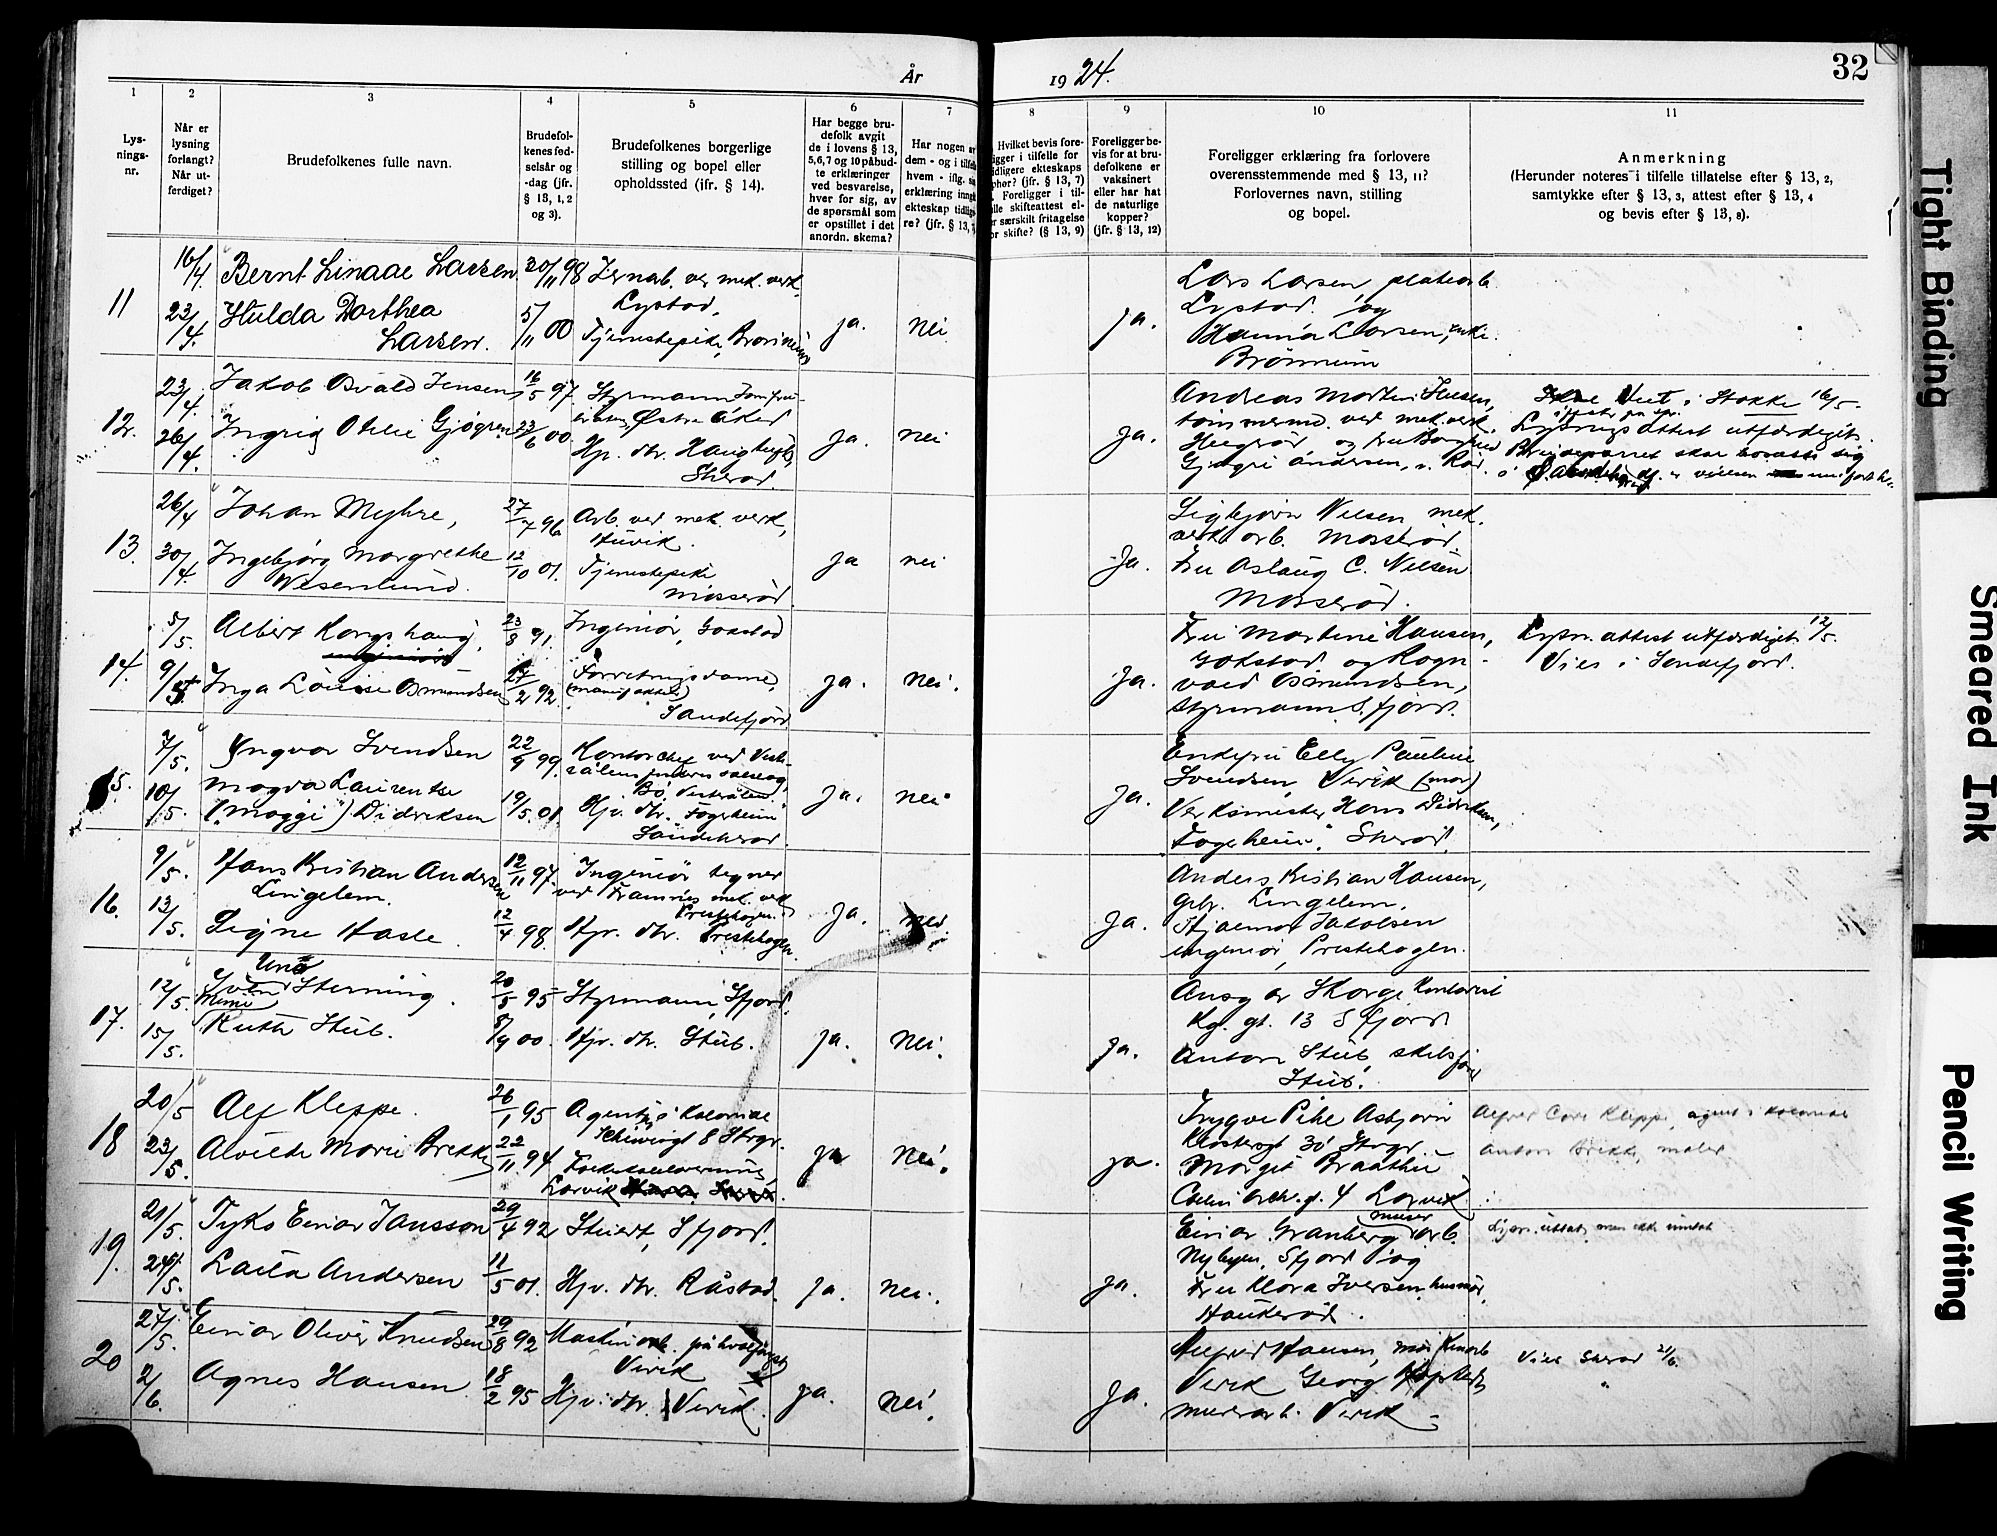 År 1924.
32
1 2 3 4 5 6 7 8 9 10 11
Lys-
nings-
nr.
Når er
lysning
forlangt?
Når ut-
ferdiget?
Brudefolkenes fulle navn.
Brudefol-
kenes fød-
selsår og
-dag (jfr.
§ 13, 1, 2
og 3).
Brudefolkenes borgerlige
stilling og bopel eller
opholdssted (ifr. § 14).
Har begge bru-
defolk avgit
de i lovens § 13,
5,6,7 og 10 påbud-
te erklæringer
ved besvarelse,
hver for sig, av
de spørsmål som
er opstillet i det
anordn. skema?
Har nogen a
dem - og i tilfelle
hvem - iflg. si
erklæring inng
ekteskap tidlig-
re? (jfr. § 13,
Hvilket bevis fore-
igger i tilfelle for
idligere ekteskaps
phør? (jfr. § 13, 7)
. Foreligger i til-
lle skifteattest el-
r særskilt fritagelse
or skifte? (§ 13, 9)
Foreligger be-
vis for at bru-
defolkene er
vaksinert
eller har hat
de naturlige
kopper?
(jfr. § 13, 12)
Foreligger erklæring fra forlovere
overensstemmende med § 13, 11?
Forlovernes navn, stilling
og bopel.
Anmerkning
(Herunder noteres i tilfelle tillatelse efter § 13, 2,
samtykke efter § 13, 3, attest efter § 13, 4
og bevis efter § 13, 8).
11
16/4.
23/4.
Bernt Linaae Larsen
Hulda Dorthea
Larsen.
20/11 98
5/11 00
Jernarb. ved mek. verk.
Lystad.
Tjenestepike,
ja.
nei
ja.
Lars Larsen, platearb
Lystad. og
Hanna Larsen, enke.
Brönnum
12.
23/4.
26/4.
Jakob Osvald Jensen
Ingrid Otelie Gjøgren
16/5 97.
23/6 00.
Styrmann
Østre Aker
Hj. dtr. Haughugst,
Sherad.
ja.
nei
ja.
Andreas Morten Jensen,
tömmermd. ved mek. verk.
og fru Borghild
Gjøgri Andersen,
Stokke 16/5.
Lysningsattest utfærdiget.
Brudeparret skal bosatte sig
13.
26/4
30/4.
Johan Myhre,
Ingebjörg Margrethe
Wesenlund.
27/7 96
12/10 01.
Arb. ved mek. verk,
Huvik.
Tjenestepike
Mosserød.
ja
nei
Ja.
Sigbjörn Nilsen mek.
verk arb. Mosserød
Fru Aslaug C. Nilsen
Mosserød.
14.
5/5.
9/5.
Albert Kongshaug,
Inga Louise Osmundsen
23/8 91.
27/2 92.
Ingeniör, Gokstad
Forretningsdame,
Sandefjord
ja.
nei.
Ja.
Fru Martine Hansen,
Gokstad. og Rogn-
vald Osmundsen,
Styrmann S.fjord.
Lysn. attest utfærdiget 12/5.
Vies i Sandefjord.
15.
7/5.
10/5.
Yngvar Svendsen
Magda Laurentse
("Maggi") Didriksen
22/9 99.
19/5 01.
Kontorchef ved Vest-
Bö, Vesterålen.
Hjv. dtr. "Fagerheim"
Sandeherad.
ja.
nei
ja.
Enkefru Elly Pauline
Svendsen, Virik (mor)
Verksmester Hans Didriksen,
"Fagerheim", Sherad.
16.
9/5.
13/5.
Hans Kristian Andersen
Lingelem.
Signe Hasle.
12/11 97.
12/4 98.
Ingeniör tegner
ved Framnes mek. verk
Prestehagen.
Hjv. dtr. Prestehagen.
Ja.
nei.
Ja.
Anders Kristian Hansen,
Grbr. Lingelem.
Hjalmar Jakobsen
ingeniör, Prestehagen.
17.
12/5.
15/5.
Sven Uno Sterning.
Mimi
Ruth Stub.
20/5 95
8/9 00.
Styrmann, Sfjord.
Hjv. dtr. Stub.
ja.
nei.
Ja.
Ansgar Skorge Kontorist
Kg. gt. 13 Sfjord
Anton Stub, skibsfører
Stub.
18
20/5
23/5.
Alf Kleppe.
Alvilde Marie Brekke
26/1 95
22/11 94
Agent, Kolonial
Schwingt 8 Strgr.
Folkeskolelærerinne,
Larvik
ja
nei.
ja.
Trygve Pihl Asbjørn
Klostergt 30 Strgr.
Margit Braathu
Colin Arch. gt. 4 Larvik
Alfred Carl Kleppe, agent i kolonial
Anton Brekke, maler
19.
21/5.
24/5.
Tyko Einar Jansson
Laila Andersen
29/4 92
11/5 01.
Stuert, Sfjord.
Hjv. dtr. Råstad.
ja.
nei.
Ja.
Einar Granberg murer arb.
Nybyen, Sfjord og
Fru Klara Iversen husmor,
Haukerød.
Lysn. uttatt, men ikke
20
27/5.
2/6.
Einar Oliver Knudsen
Agnes Hansen
29/8 92
18/2 95
Maskinarb. på hvalfangst
Virik
Hjv. dtr. Virik.
ja.
nei.
Ja.
Alfred Hansen,
Virik Georg
murerarb. Virik
Vies Sherad 21/6.
Tight Binding
Smeared Ink
Pencil Writing